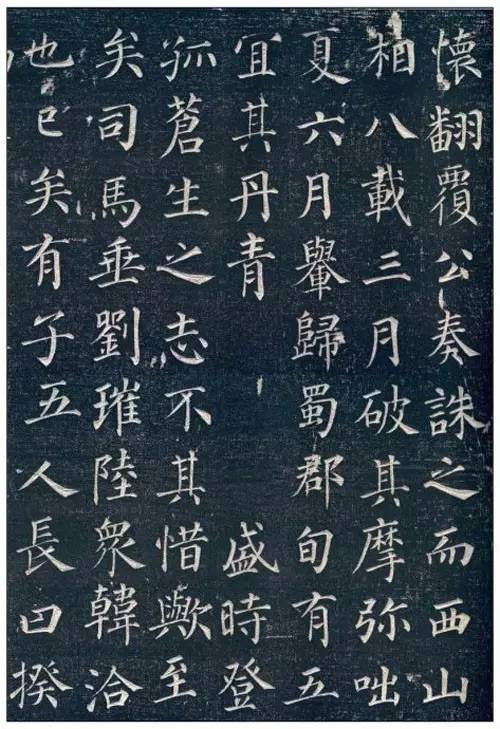 懷翻覆公奏誅之而西山
相八載三月破其摩弥咄
夏六月轝歸蜀郡旬有五
宜其丹青 盛時登
孤蒼生之志不其惜歟至
矣司馬垂劉璀陸衆韓洽
也已矣有子五人長曰揆